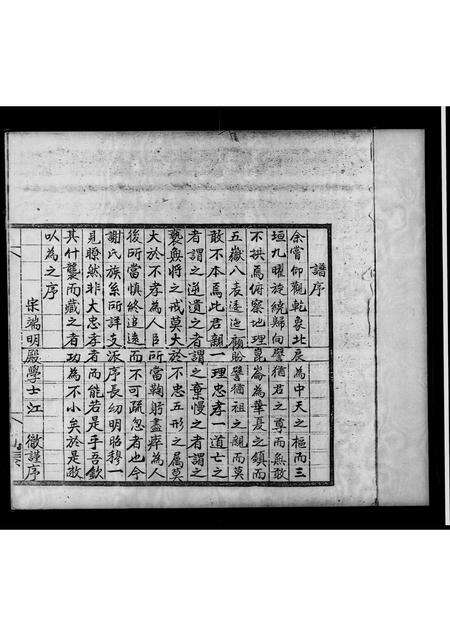 譜序
余嘗仰觀乾象北辰為中天之樞而三
垣九曜旋繞歸向譬猶君之尊而無敢
不拱焉俯察地理崑崙為華夏之鎮而
五嶽八表逶迤顧盼譬猶祖之親而莫
敢不本焉此君親一理忠孝一道亡之
者謂之逆遺之者謂之棄慢之者謂之
褻與將之戒莫大於不忠五刑之屬莫
大於不孝為人臣所當鞠躬盡瘁為人
後所當慎終追遠而不可疏忽者也今
謝氏族系所詳支派序長幼明昭穆一
見瞭然非大忠孝者而能若是乎吾欽
其什襲而藏之者功為不小矣於是敬
以為之序
宋端明殿學士江 徵謹序